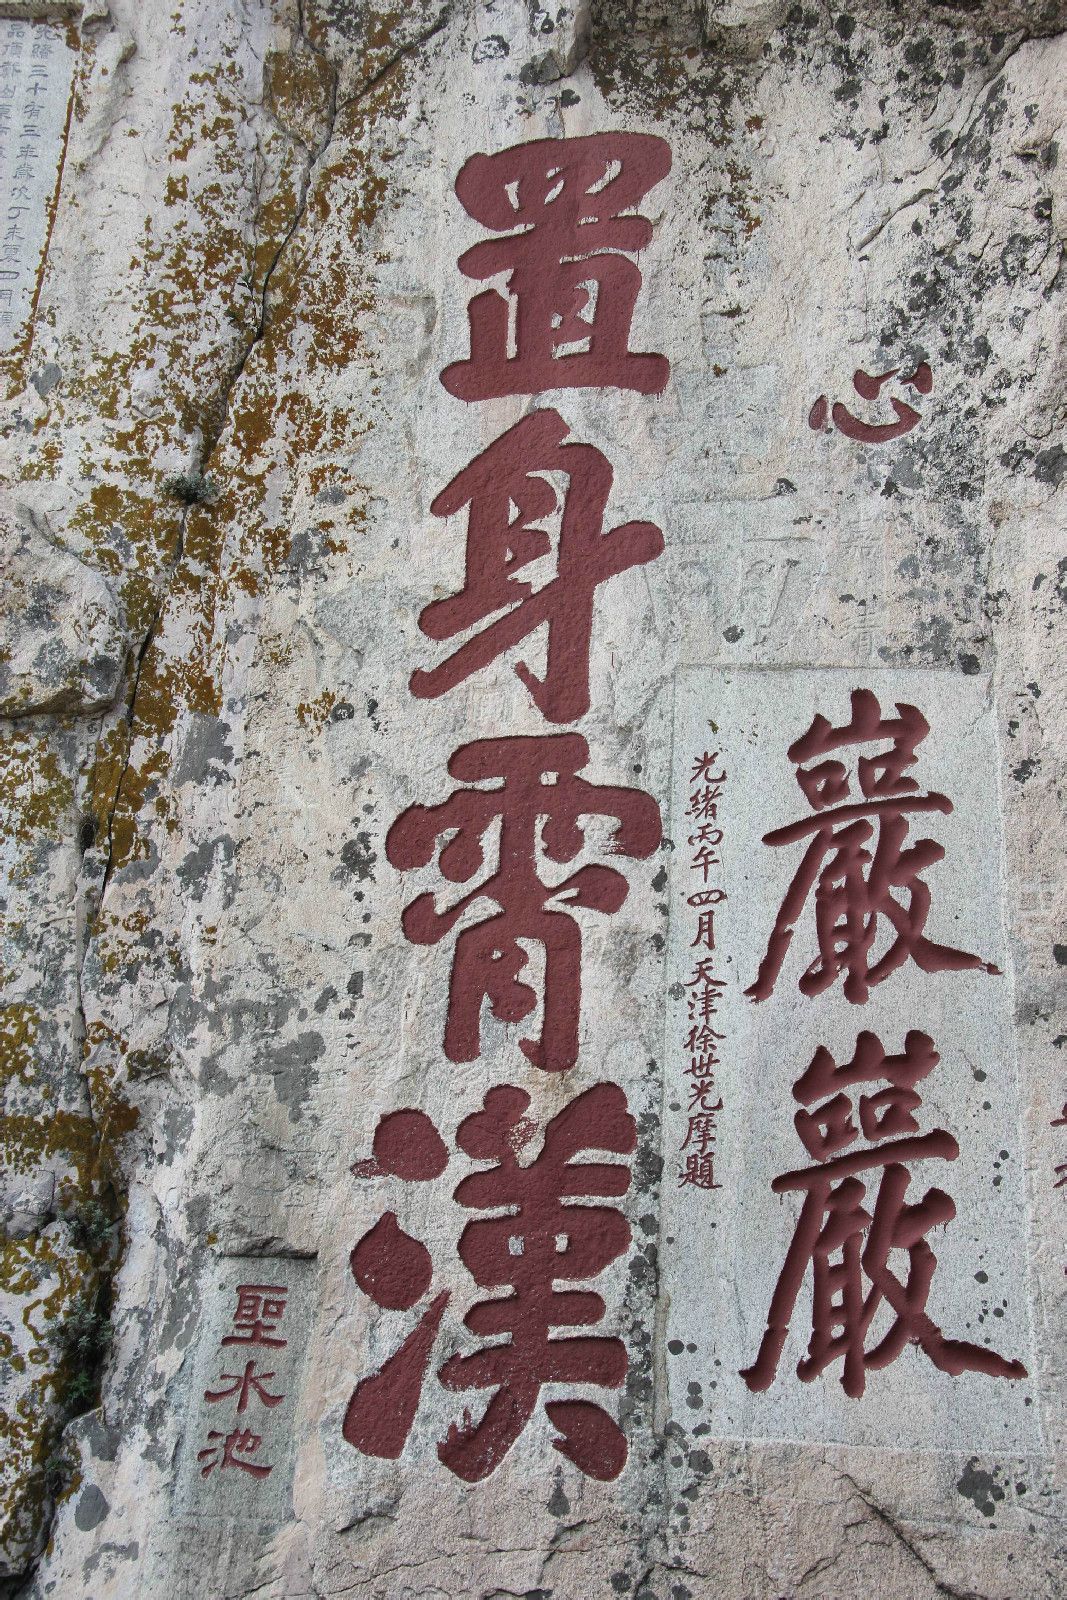 心
巖巖
光緒丙午四月天津徐世光摩題
置身霄漢
聖水池
光緒三十有三年歲次丁未夏四月